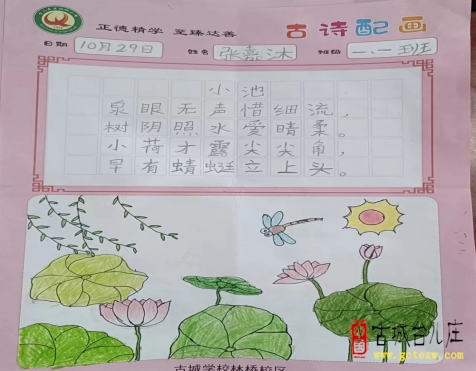 正德精学 至臻达善
古诗配画
日期 10月29日 姓名 张嘉沐 班级 一、一班
小池
泉眼无声惜细流，
树阴照水爱晴柔。
小荷才露尖尖角，
早有蜻蜓立上头。
古城台儿庄
www.gctezw.com
古城学校林桥校区